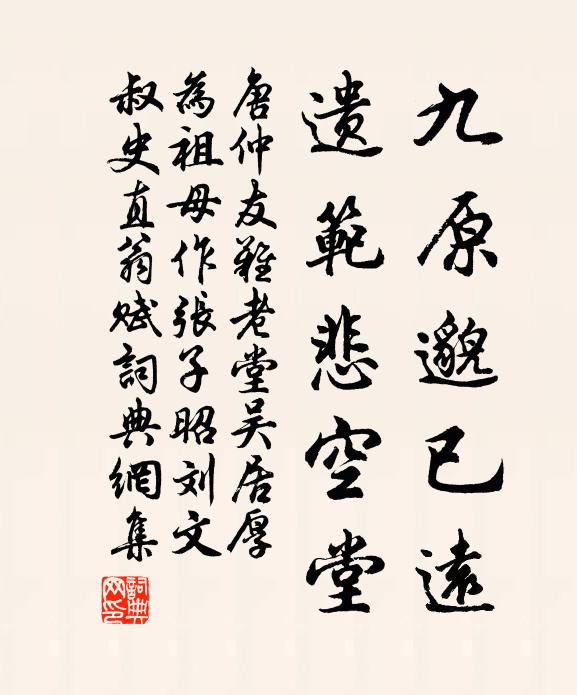 九原邈已遠
遺範悲空堂
唐仲友難老堂吴居厚
為祖母作張子昭刘文
叔史直翁赋詞典網集
詞典网印